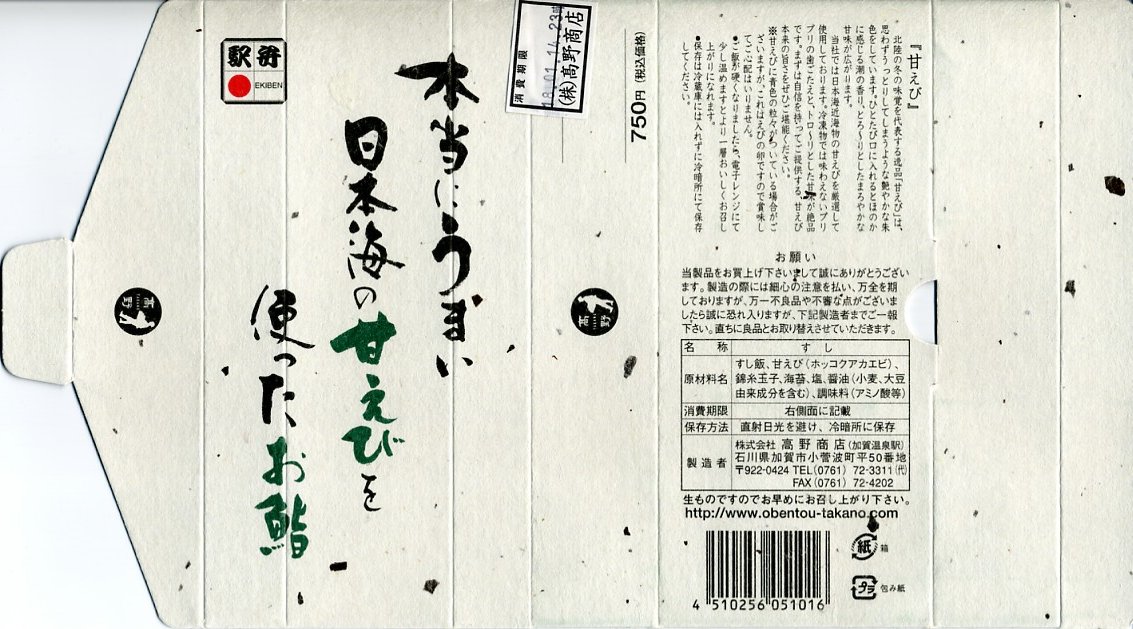 駅弁
EKIBEN
本当にうまい
日本海の甘えびを
使ったお鮨
高野
消費期限
18.01.14.23時
(株)高野商店
高野
750円(税込価格)
『甘えび』
北陸の冬の味覚を代表する逸品「甘えび」は、
思わずうっとりしてしまうような艶やかな朱
色をしています。ひとたび口に入れるとほのか
に感じる潮の香り、とろ〜りとしたまろやかな
甘味が広がります。
当社では日本海近海物の甘えびを厳選して
使用しております。冷凍物では味わえないプリ
プリの歯ごたえと、トロ〜リとした甘味が絶品
です。まずは自信を持ってご提供する、甘えび
本来の旨さをぜひご堪能ください。
※甘えびに青色の粒々がついている場合がご
ざいますが、これはえびの卵ですので賞味し
てご心配はいりません。
●ご飯が硬くなりましたら、電子レンジにて
少し温めますとより一層おいしくお召し
上がりになれます。
●保存は冷蔵庫には入れずに冷暗所にて保存
してください。
お願い
当製品をお買上げ下さいまして誠にありがとうござい
ます。製造の際には細心の注意を払い、万全を期
しておりますが、万一不良品や不審な点がございま
したら誠に恐れ入りますが、下記製造者までご一報
下さい。直ちに良品とお取り替えさせていただきます。
名称 すし
原材料名 すし飯、甘えび(ホッコクアカエビ)、
錦糸玉子、海苔、塩、醤油(小麦、大豆
由来成分を含む)、調味料(アミノ酸等)
消費期限 右側面に記載
保存方法 直射日光を避け、冷暗所に保存
製造者 株式会社 高野商店(加賀温泉駅)
石川県加賀市小菅波町平50番地
〒922-0424 TEL(0761) 72-3311(代)
FAX(0761) 72-4202
生ものですのでお早めにお召し上がり下さい。
http://www.obentou-takano.com
4 510256 051016
紙 箱
プラ 包み紙